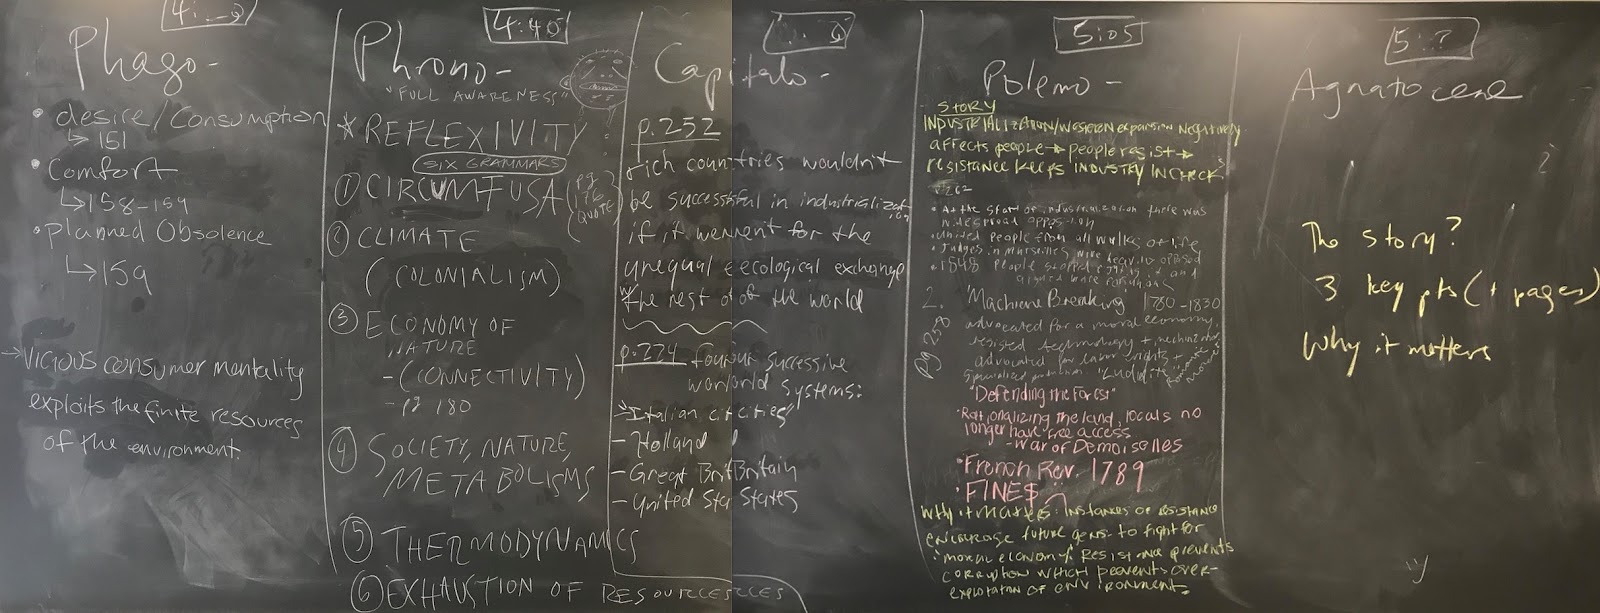 Phago-
• desire/Consumption
↳ 151
• Comfort
↳ 158-159
• Planned Obsolence
↳ 159
→ Vicious consumer mentality
exploits the finite resources
of the environment.
4:40
Phrono-
"FULL AWARENESS"
* REFLEXIVITY
SIX GRAMMARS
① CIRCUMFUSA (pg 176 QUOTE)
② CLIMATE
(COLONIALISM)
③ ECONOMY OF
NATURE
- (CONNECTIVITY)
- pg 180
④ SOCIETY, NATURE,
METABOLISMS
⑤ THERMODYNAMICS
⑥ EXHAUSTION OF RESOURCES
Capitalo-
p.252
rich countries wouldn't
be successful in industrialization
if it weren't for the
unequal ecological exchange
w/ the rest of the world
p.224 four successive
world systems:
- "Italian cities"
- Holland
- Great Britain
- United States
5:05
Polemo-
STORY
INDUSTRIALIZATION/Western expansion negatively
affects people → people resist →
resistance keeps INDUSTRY IN CHECK
• At the start of industrialization there was
widespread opposition
• united people from all walks of life
• Judges in Marseilles were heavily opposed
• 1848 people
2. "Machine Breaking" 1780-1830
pg 258
advocated for a moral economy,
resisted technology +
advocated for labor rights +
"Luddite"
"Defending the Forest"
• Rationalizing the land, locals no
longer have free access
- War of Demoiselles
• French Rev. 1789
• FINE$
Why it matters: Instances of resistance
encourage future gens. to fight for
"moral economy". Resistance prevents
corruption which prevents over-
exploitation of environment.
5:?
Agnatocene
The story?
3 key pts (+ pages)
Why it matters